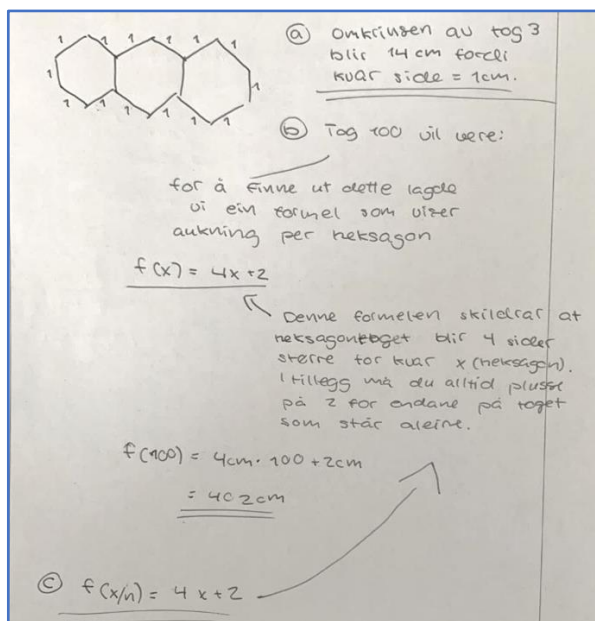 1 1 1 1 1 1
1 1
1 1 1 1 1 1
ⓐ Omkrinsen av tog 3
blir 14 cm fordi
kvar side = 1cm.
ⓑ Tog 100 vil vere:
for å finne ut dette lagde
vi ein formel som viser
aukning per heksagon
f(x) = 4x+2
Denne formelen skildrar at
heksagontoget blir 4 sider
større for kvar x (heksagon).
I tillegg må du alltid plusse
på 2 for endane på toget
som står aleine.
f(100) = 4cm · 100 + 2cm
= 402cm
ⓒ f(x/n) = 4x+2